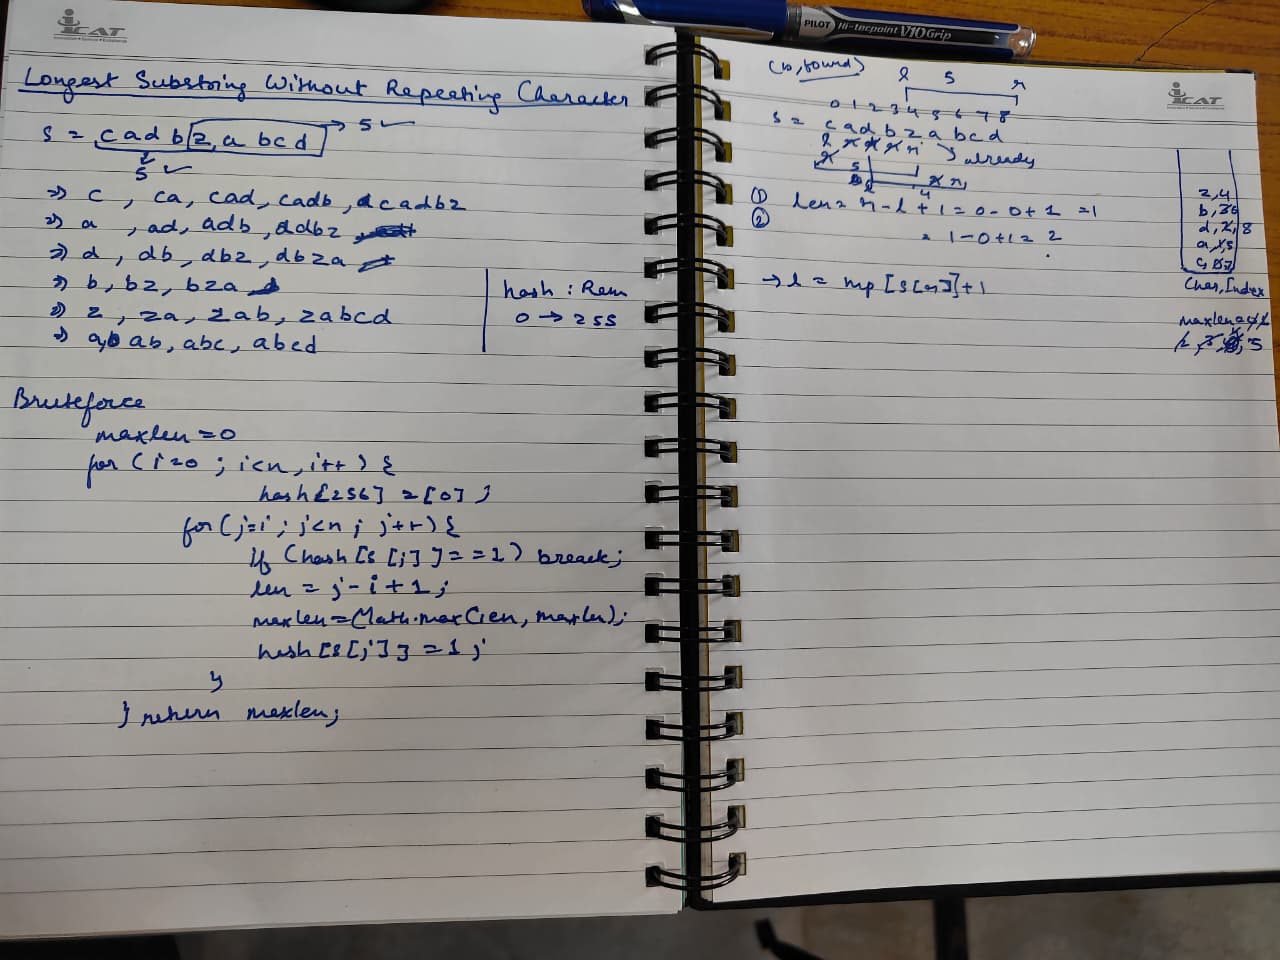 iCAT
Longest Substring Without Repeating Character
s = cadbz,abcd → 5 ✓
5 ✓
⇒ c, ca, cad, cadb, cadbz
⇒ a, ad, adb, adbz
⇒ d, db, dbz, dbza
⇒ b, bz, bza
⇒ z, za, zab, zabcd
⇒ a, ab, abc, abcd
hash : Rem
0 → 255
Bruteforce
maxlen = 0
for (i=0 ; i<n, i++) {
hash[256] = [0] ;
for (j=i ; j<n ; j++) {
if (hash[s[j]] == 1) break;
len = j - i + 1;
maxlen = Math.max(len, maxlen);
hash[s[j]] = 1 ;
}
} return maxlen;
PILOT Hi-tecpoint V10 Grip
iCAT
l 5 r
0 1 2 3 4 5 6 7 8
s = c a d b z a b c d
already
① len = r - l + 1 = 0 - 0 + 1 = 1
② = 1 - 0 + 1 = 2
→ l = mp[s[r]] + 1
z, 4
b, 6
d, 2, 8
a, 5
c, 7
Char, Index
maxlen =
5